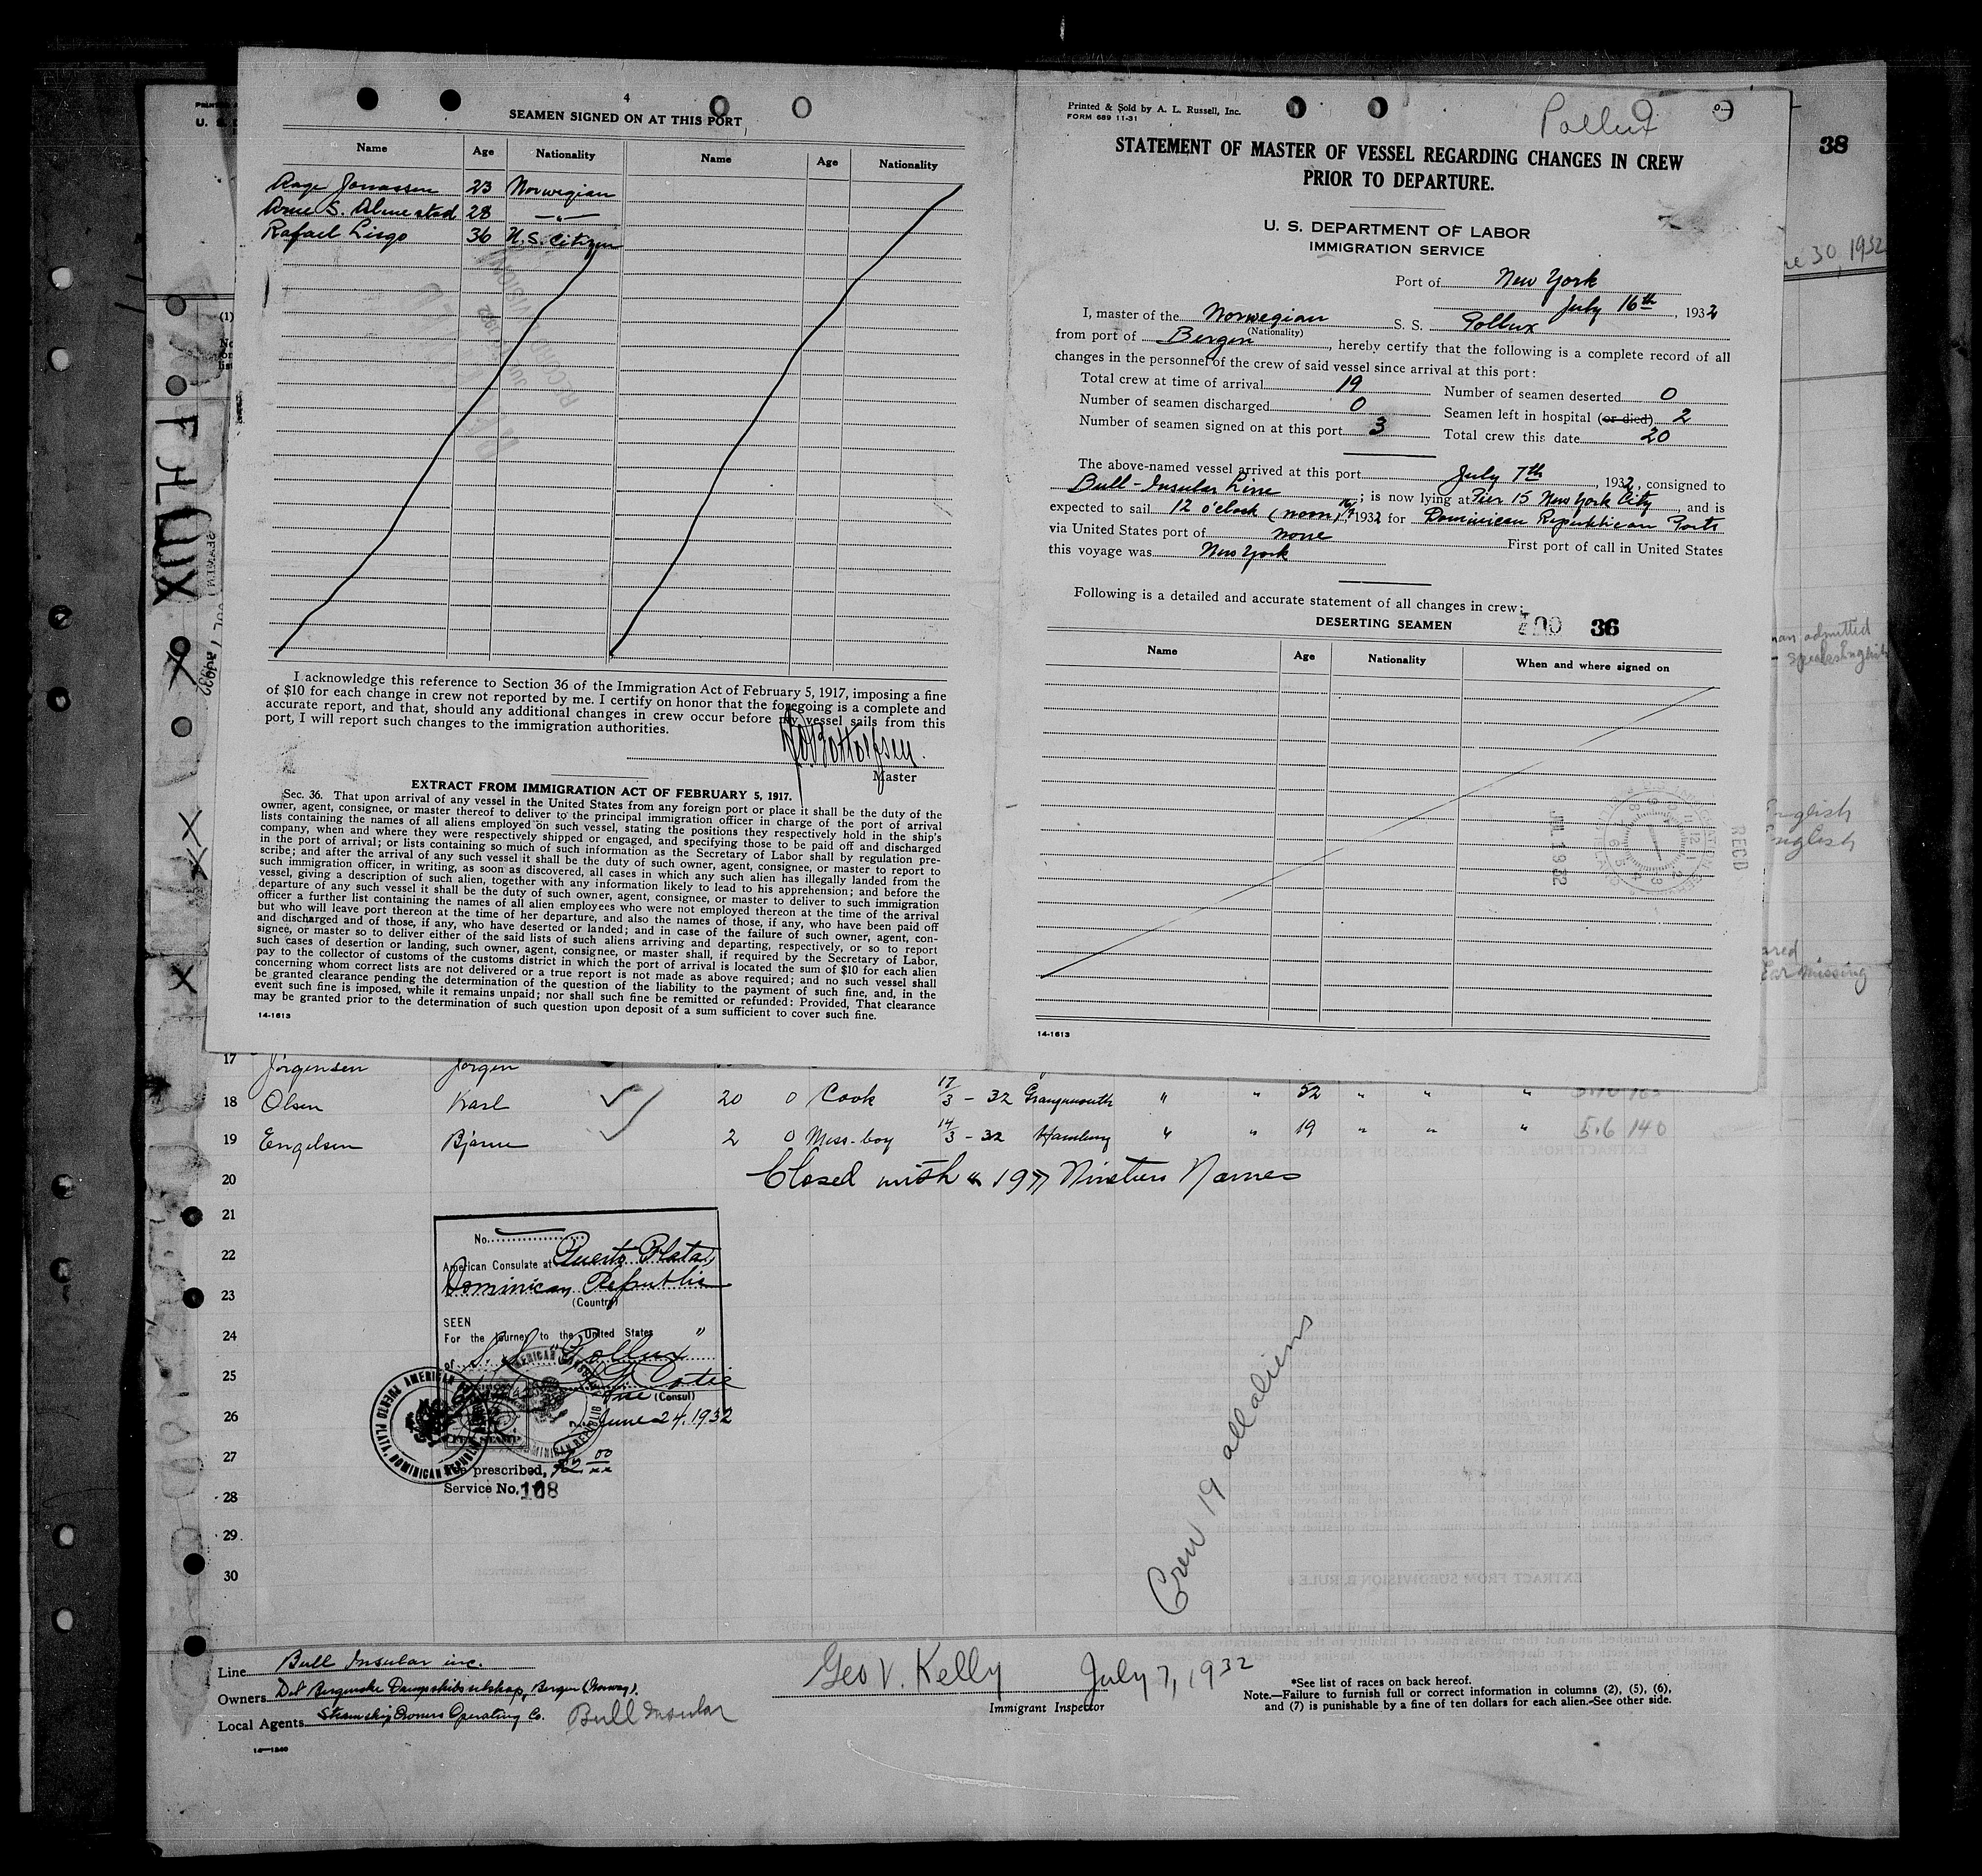 4
SEAMEN SIGNED ON AT THIS PORT
Name Age Nationality Name Age Nationality
Aage Jonassen 23 Norwegian
Arne S. 28 —"—
Rafael 36 U.S. Citizen
I acknowledge this reference to Section 36 of the Immigration Act of February 5, 1917, imposing a fine
of $10 for each change in crew not reported by me. I certify on honor that the foregoing is a complete and
accurate report, and that, should any additional changes in crew occur before my vessel sails from this
port, I will report such changes to the immigration authorities.
Master
EXTRACT FROM IMMIGRATION ACT OF FEBRUARY 5, 1917.
Sec. 36. That upon arrival of any vessel in the United States from any foreign port or place it shall be the duty of the
owner, agent, consignee, or master thereof to deliver to the principal immigration officer in charge of the port of arrival
lists containing the names of all aliens employed on such vessel, stating the positions they respectively hold in the ship's
company, when and where they were respectively shipped or engaged, and specifying those to be paid off and discharged
in the port of arrival; or lists containing so much of such information as the Secretary of Labor shall by regulation pre-
scribe; and after the arrival of any such vessel it shall be the duty of such owner, agent, consignee, or master to report to
such immigration officer, in writing, as soon as discovered, all cases in which any such alien has illegally landed from the
vessel, giving a description of such alien, together with any information likely to lead to his apprehension; and before the
departure of any such vessel it shall be the duty of such owner, agent, consignee, or master to deliver to such immigration
officer a further list containing the names of all alien employees who were not employed thereon at the time of the arrival
but who will leave port thereon at the time of her departure, and also the names of those, if any, who have been paid off
and discharged and of those, if any, who have deserted or landed; and in case of the failure of such owner, agent, con-
signee, or master so to deliver either of the said lists of such aliens arriving and departing, respectively, or so to report
such cases of desertion or landing, such owner, agent, consignee, or master shall, if required by the Secretary of Labor,
pay to the collector of customs of the customs district in which the port of arrival is located the sum of $10 for each alien
concerning whom correct lists are not delivered or a true report is not made as above required; and no such vessel shall
be granted clearance pending the determination of the question of the liability to the payment of such fine, and, in the
event such fine is imposed, while it remains unpaid; nor shall such fine be remitted or refunded: Provided, That clearance
may be granted prior to the determination of such question upon deposit of a sum sufficient to cover such fine.
14-1613
Printed & Sold by A. L. Russell, Inc.
FORM 689 11-31
Pollux
STATEMENT OF MASTER OF VESSEL REGARDING CHANGES IN CREW
PRIOR TO DEPARTURE.
U. S. DEPARTMENT OF LABOR
IMMIGRATION SERVICE
Port of New York
July 16th, 1932
I, master of the Norwegian S. S. Pollux
(Nationality)
from port of Bergen, hereby certify that the following is a complete record of all
changes in the personnel of the crew of said vessel since arrival at this port:
Total crew at time of arrival 19 Number of seamen deserted 0
Number of seamen discharged 0 Seamen left in hospital (or died) 2
Number of seamen signed on at this port 3 Total crew this date 20
The above-named vessel arrived at this port July 7th, 1932, consigned to
Bull-Insular Line; is now lying at Pier 15 New York City, and is
expected to sail 12 o'clock (noon) 16/7, 1932 for Dominican Republican Ports
via United States port of none First port of call in United States
this voyage was New York
Following is a detailed and accurate statement of all changes in crew:
DESERTING SEAMEN 36
Name Age Nationality When and where signed on
JUL 1932
RECD
14-1613
38
30, 1932
admitted
English
English
missing
POLLUX
17 Jørgensen Jørgen
18 Olsen Karl 20 0 Cook 17/3 - 32 Grangemouth " " 52 " " "
19 Engelsen Bjarne 2 0 Mess-boy 14/3 - 32 Hamburg " " 19 " " " 5.6 140
20 Closed with "19" Nineteen Names
21
22
23
24
25
26
27
28
29
30
No.
American Consulate at Puerto Plata,
Dominican Republic
(Country)
SEEN
For the journey to the United States
of S.S. "Pollux"
Vice (Consul)
June 24, 1932
AMERICAN
PUERTO PLATA, DOMINICAN REPUBLIC
Fee prescribed, $2.00
Service No. 168
Crew 19 all aliens
Line Bull Insular inc.
Owners Det Bergenske Dampskibsselskap, Bergen (Norway).
Local Agents Steamship Owners Operating Co. Bull Insular
Geo V. Kelly July 7, 1932
Immigrant Inspector
*See list of races on back hereof.
Note.—Failure to furnish full or correct information in columns (2), (5), (6),
and (7) is punishable by a fine of ten dollars for each alien.—See other side.